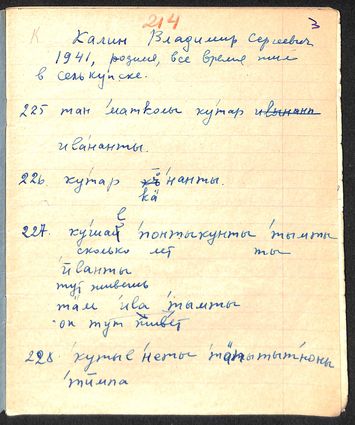 К 214 3
Калин Владимир Сергеевич
1941, родился, все время жил
в селькупске.
225 тан ма́тколы ку́тар
ива́нанты.
226. ку́тар нанты.
кӓ
227. ку́шай ́понтыкунты ́тымты
сколько лет ты
ӣванты
тут живешь
та̄м ́ива ́тымты
он тут живёт
228. ́кутыё ́неты
́тӣмпа